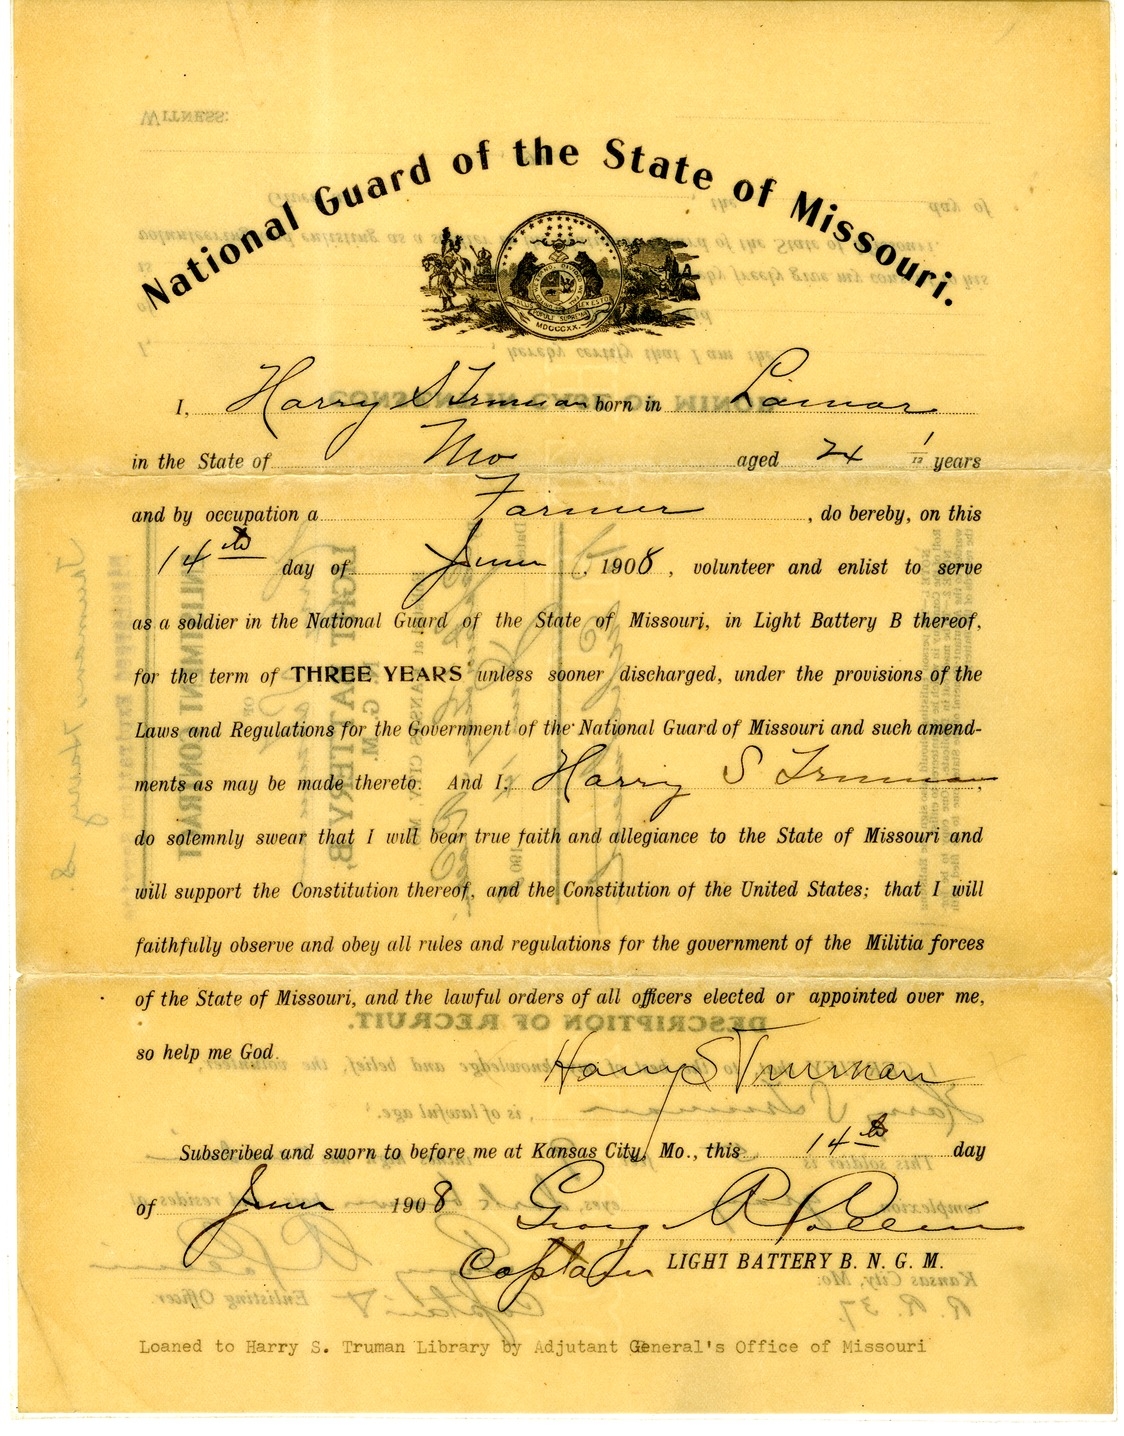 National Guard of the State of Missouri.
MDCCCXX.
I, Harry S Truman born in Lamar
in the State of Mo aged 24 1/12 years
and by occupation a Farmer, do bereby, on this
14th day of June, 1908, volunteer and enlist to serve
as a soldier in the National Guard of the State of Missouri, in Light Battery B thereof,
for the term of THREE YEARS unless sooner discharged, under the provisions of the
Laws and Regulations for the Government of the National Guard of Missouri and such amend-
ments as may be made thereto. And I, Harry S Truman,
do solemnly swear that I will bear true faith and allegiance to the State of Missouri and
will support the Constitution thereof, and the Constitution of the United States; that I will
faithfully observe and obey all rules and regulations for the government of the Militia forces
of the State of Missouri, and the lawful orders of all officers elected or appointed over me,
so help me God.
Harry S Truman
Subscribed and sworn to before me at Kansas City, Mo., this 14th day
of June 1908 George R Collins
Captain LIGHT BATTERY B. N. G. M.
Loaned to Harry S. Truman Library by Adjutant General's Office of Missouri